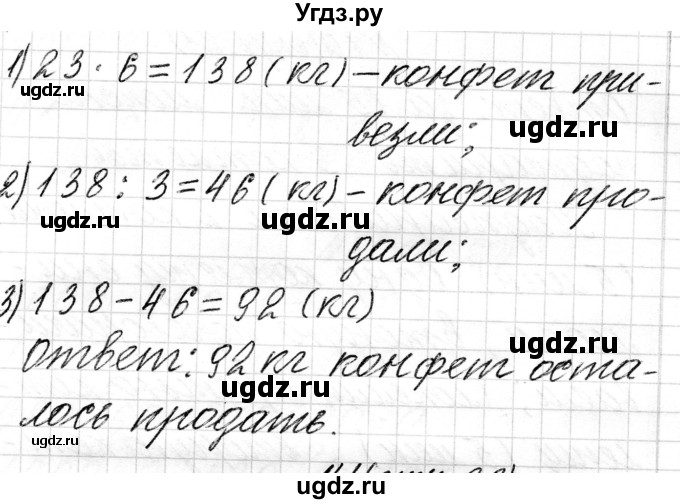 Угдз.ру
1) 23 · 6 = 138 (кг) – конфет при-
везли;
ugdz.ru
ugdz.ru
2) 138 : 3 = 46 (кг) – конфет про-
ugdz.ru
ugdz.ru
дали;
3) 138 – 46 = 92 (кг)
ugdz.ru
Ответ: 92 кг конфет оста-
ugdz.ru
лось продать.
ugdz.ru